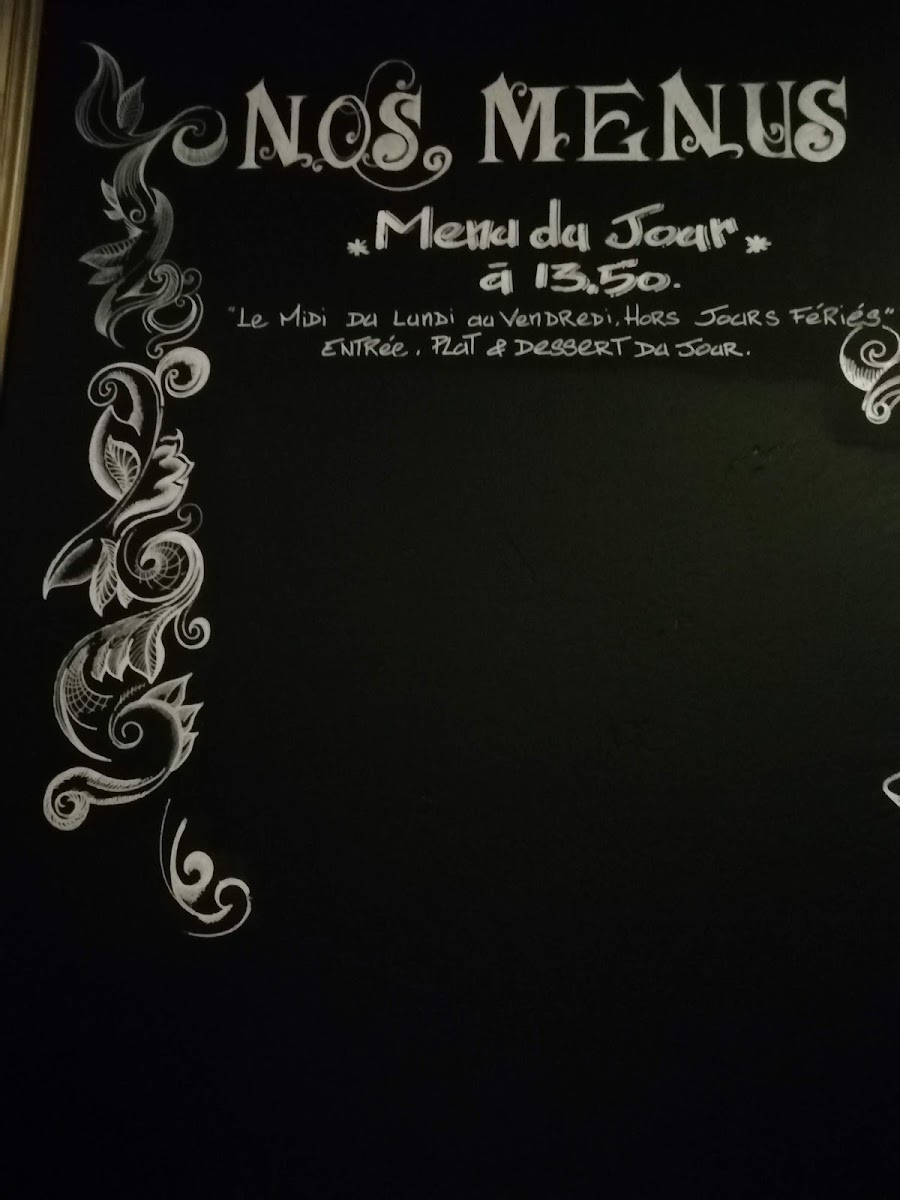 NOS MENUS
*Menu du Jour*
à 13.50.
"Le Midi du Lundi au Vendredi, Hors Jours Fériés"
Entrée, Plat & Dessert du Jour.